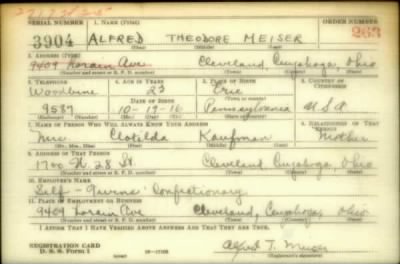 SERIAL NUMBER 1. NAME (Print) ORDER NUMBER
3904 ALFRED THEODORE MEISER 263
(First) (Middle) (Last)
2. ADDRESS (Print)
9409 Lorain Ave. Cleveland Cuyahoga Ohio
(Number and street or R. F. D. number) (Town) (County) (State)
3. TELEPHONE 4. AGE IN YEARS 5. PLACE OF BIRTH 6. COUNTRY OF CITIZENSHIP
Woodbine 23 Erie
DATE OF BIRTH (Town or county)
9587 10-19-16 Pennsylvania U S A
(Exchange) (Number) (Mo.) (Day) (Yr.) (State or country)
7. NAME OF PERSON WHO WILL ALWAYS KNOW YOUR ADDRESS 8. RELATIONSHIP OF THAT PERSON
Mrs Clotilda Kaufman Mother
(Mr., Mrs., Miss) (First) (Middle) (Last)
9. ADDRESS OF THAT PERSON
W. 28 St Cleveland Cuyahoga, Ohio
(Number and street or R. F. D. number) (Town) (County) (State)
10. EMPLOYER'S NAME
Self - Confectionary
11. PLACE OF EMPLOYMENT OR BUSINESS
9409 Lorain Ave Cleveland, Cuyahoga, Ohio
(Number and street or R. F. D. number) (Town) (County) (State)
I AFFIRM THAT I HAVE VERIFIED ABOVE ANSWERS AND THAT THEY ARE TRUE.
REGISTRATION CARD
D. S. S. Form 1
Alfred T. Meiser
(Registrant's signature)